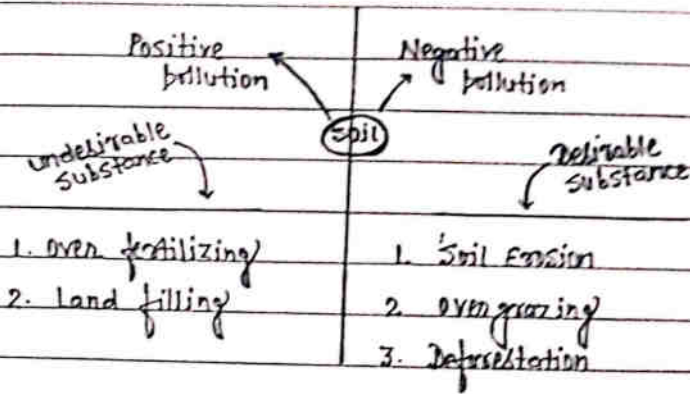 Positive
pollution
Negative
pollution
Soil
undesirable
substance
Desirable
substance
1. Over fertilizing
2. Land filling
1. Soil Erosion
2 Over grazing
3. Deforestation